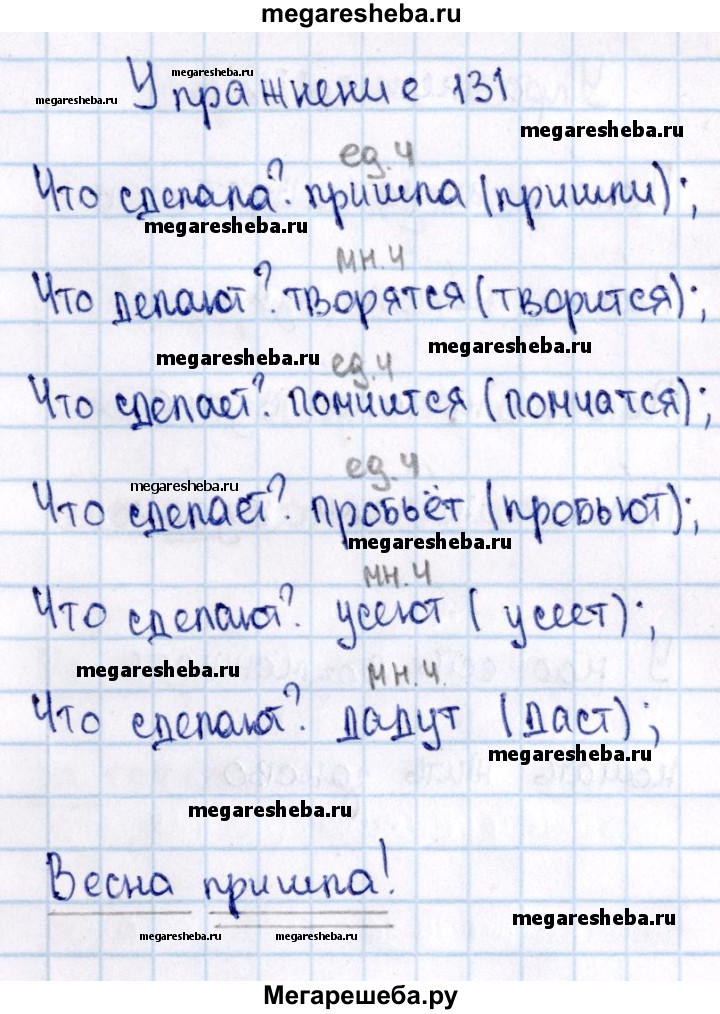 megaresheba.ru
megaresheba.ru
megaresheba.ru
Упражнение 131
megaresheba.ru
ед.ч
Что сделала? пришла (пришли);
megaresheba.ru
мн.ч
Что делают? творятся (творится);
megaresheba.ru
megaresheba.ru
ед.ч
Что сделает? помчится (помчатся);
ед.ч
megaresheba.ru
Что сделает? пробьёт (пробьют);
megaresheba.ru
мн.ч
Что сделают? усеют (усеет);
megaresheba.ru
мн.ч.
Что сделают? дадут (даст);
megaresheba.ru
megaresheba.ru
Весна пришла!
megaresheba.ru
megaresheba.ru megaresheba.ru
Мегарешеба.ру